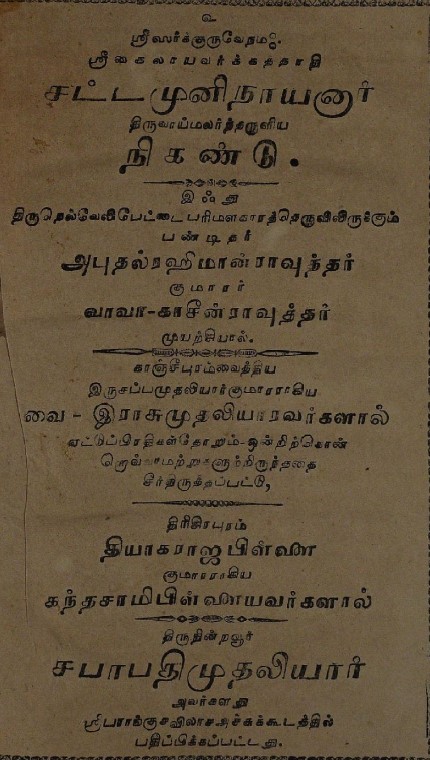 உ
ஸ்ரீஸற்க்குருவேநம:.
ஸ்ரீகைலாயவர்க்கத்தாதி
சட்டமுனிநாயனார்
திருவாய்மலர்ந்தருளிய
நிகண்டு.
இஃது
திருநெல்வேலிபேட்டை பரிமளகாரத்தெருவிலிருக்கும்
பண்டிதர்
அபுதல்றஹிமான்ராவுத்தர்
குமாரர்
வாவா-காசீன்ராவுத்தர்
முயற்சியால்.
காஞ்சீபுரம்வைத்திய
இருசப்பமுதலியார்குமாரராகிய
வை - இராசுமுதலியாரவர்களால்
ஏட்டுப்பிரதிகள்தோறும்-ஒன்றிற்கொன்
சீர்திருத்தப்பட்டு,
திரிசிரபுரம்
தியாகராஜபிள்ளை
குமாரராகிய
கந்தசாமிபிள்ளையவர்களால்
திருநின்றவூர்
சபாபதிமுதலியார்
அவர்களது
ஸ்ரீபராங்குசவிலாசஅச்சுக்கூடத்தில்
பதிப்பிக்கப்பட்டது.